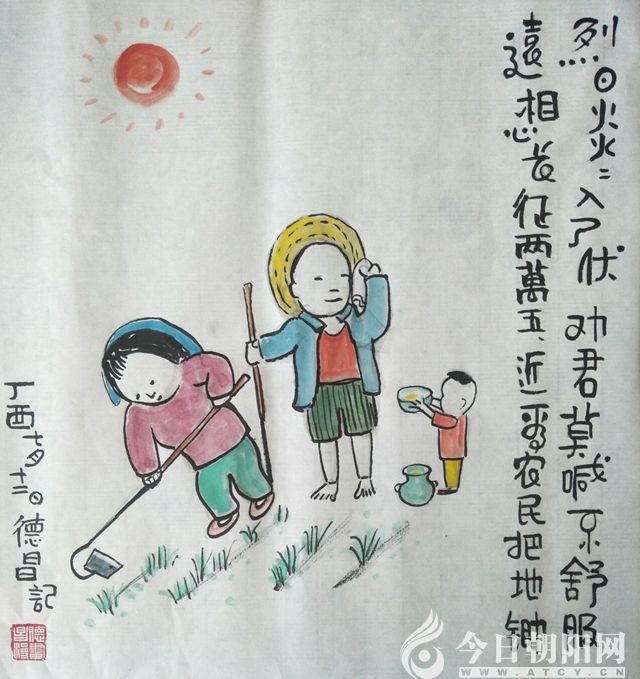 烈日炎〻入了伏 劝君莫喊不舒服
遠想长征两萬五、近看农民把地锄
丁酉七月十二日德昌記
今日朝阳网
WWW.ATCY.CN